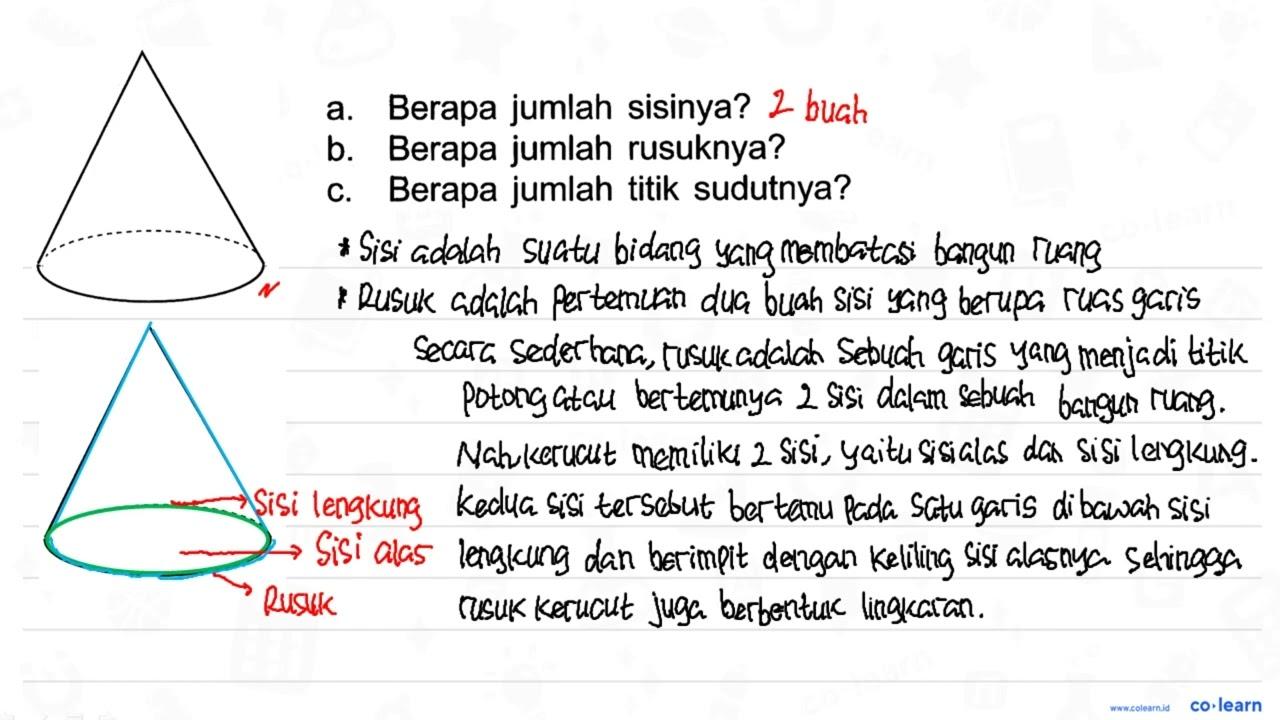 a. Berapa jumlah sisinya? 2 buah
b. Berapa jumlah rusuknya?
c. Berapa jumlah titik sudutnya?
* Sisi adalah suatu bidang yang membatasi bangun ruang
* Rusuk adalah pertemuan dua buah sisi yang berupa ruas garis
secara sederhana, rusuk adalah sebuah garis yang menjadi titik
potong atau bertemunya 2 sisi dalam sebuah bangun ruang.
Nah, kerucut memiliki 2 sisi, yaitu sisi alas dan sisi lengkung.
Sisi lengkung
kedua sisi tersebut bertemu pada satu garis di bawah sisi
Sisi alas
lengkung dan berimpit dengan keliling sisi alasnya sehingga
Rusuk
rusuk kerucut juga berbentuk lingkaran.
www.colearn.id co·learn